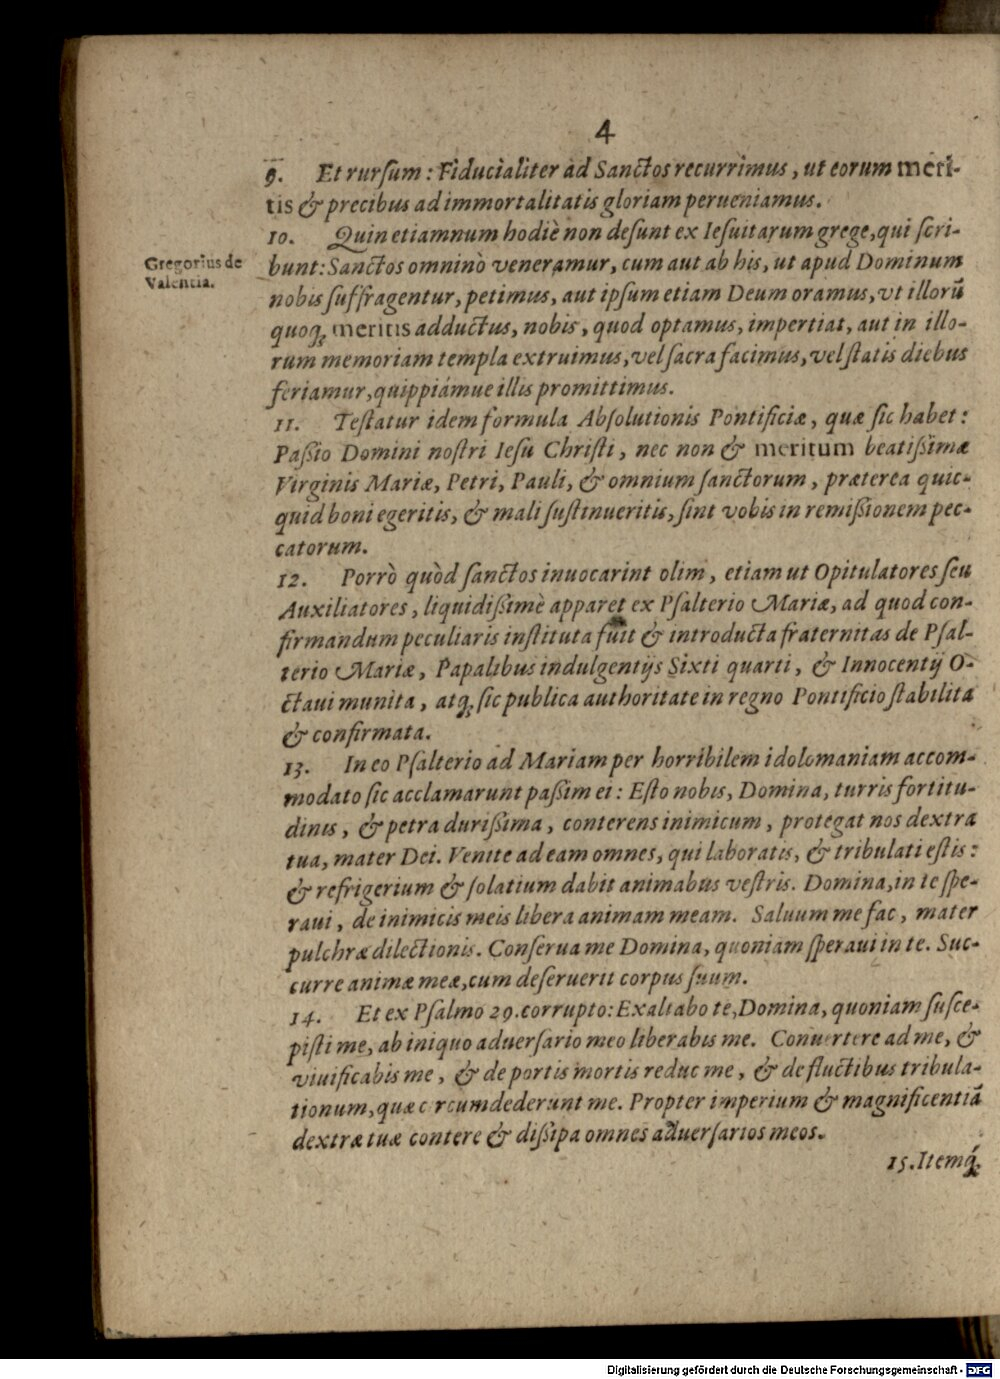 4
9. Et rurſum: Fiducialiter ad Sanctos recurrimus, ut eorum meri-
tis & precibus ad immortalitatis gloriam perueniamus.
10. Quin etiamnum hodiè non deſunt ex Ieſuitarum grege, qui ſcri-
Gregorius de
Valentia.
bunt: Sanctos omninò veneramur, cum aut ab his, ut apud Dominum
nobis ſuffragentur, petimus, aut ipſum etiam Deum oramus, vt illorū
quoq; meritis adductus, nobis, quod optamus, impertiat, aut in illo-
rum memoriam templa extruimus, vel ſacra facimus, vel ſtatis diebus
feriamur, quippiámue illis promittimus.
11. Teſtatur idem formula Abſolutionis Pontificiæ, quæ ſic habet:
Paßio Domini noſtri Ieſu Chriſti, nec non & meritum beatißimæ
Virginis Mariæ, Petri, Pauli, & omnium ſanctorum, præterea quic-
quid boni egeritis, & mali ſuſtinueritis, ſint vobis in remißionem pec-
catorum.
12. Porrò quòd ſanctos inuocarint olim, etiam ut Opitulatores ſeu
Auxiliatores, liquidißimè apparet ex Pſalterio Mariæ, ad quod con-
firmandum peculiaris inſtituta fuit & introducta fraternitas de Pſal-
terio Mariæ, Papalibus indulgentijs Sixti quarti, & Innocentij O-
ctaui munita, atq; ſic publica authoritate in regno Pontificio ſtabilita
& confirmata.
13. In eo Pſalterio ad Mariam per horribilem idolomaniam accom-
modato ſic acclamarunt paßim ei: Eſto nobis, Domina, turris fortitu-
dinis, & petra durißima, conterens inimicum, protegat nos dextra
tua, mater Dei. Venite ad eam omnes, qui laboratis, & tribulati eſtis:
& refrigerium & ſolatium dabit animabus veſtris. Domina, in te ſpe-
raui, de inimicis meis libera animam meam. Saluum me fac, mater
pulchræ dilectionis. Conſerua me Domina, quoniam ſperaui in te. Suc-
curre animæ meæ, cum deſeruerit corpus ſuum.
14. Et ex Pſalmo 29. corrupto: Exaltabo te, Domina, quoniam ſuſce-
piſti me, ab iniquo aduerſario meo liberabis me. Conuertere ad me, &
viuificabis me, & de portis mortis reduc me, & de fluctibus tribula-
tionum, quæ c rcumdederunt me. Propter imperium & magnificentiā
dextræ tuæ contere & dißipa omnes aduerſarios meos.
15. Itemq́;
Digitalisierung gefördert durch die Deutsche Forschungsgemeinschaft - DFG